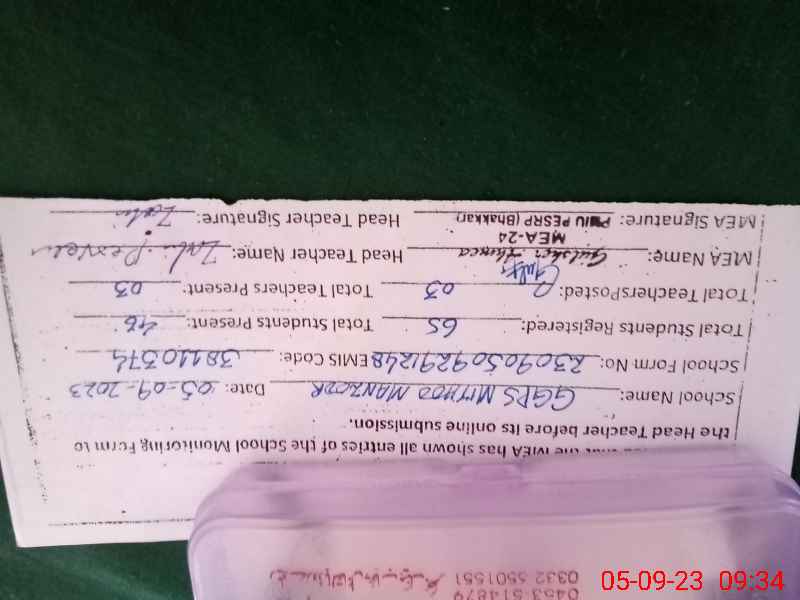 that the MEA has shown all entries of the School Monitoring Form to
the Head Teacher before its online submission.
School Name: GGPS MITHOO MANZOOR Date: 05-09-2023
School Form No: 23090509291248 EMIS Code: 38110374
Total Students Registered: 65 Total Students Present: 46
Total Teachers Posted: 03 Total Teachers Present: 03
MEA Name: Head Teacher Name:
MEA-24
MEA Signature: PMIU PESRP (Bhakkar) Head Teacher Signature:
0453-514879
0332 5501551
05-09-23 09:34